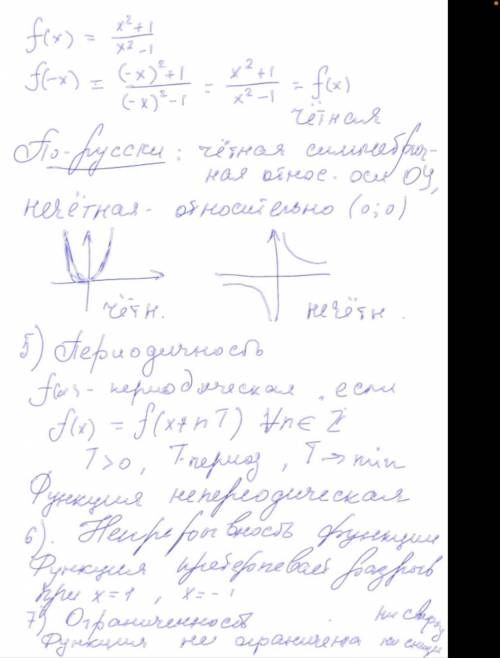 f(x) = (x²+1)/(x²-1)
f(-x) = ((-x)²+1)/((-x)²-1) = (x²+1)/(x²-1) = f(x)
чётная
По-русски: чётная симметрич-
ная относ. оси OY,
нечётная - относительно (0;0)
чётн. нечётн.
5) Периодичность
f(x) - периодическая, если
f(x) = f(x+nT) ∀n∈Z
T>0, T-период, T→min
Функция непериодическая
6). Непрерывность функции
Функция претерпевает разрыв
при x=1, x=-1
7) Ограниченность
Функция не ограничена ни сверху ни снизу